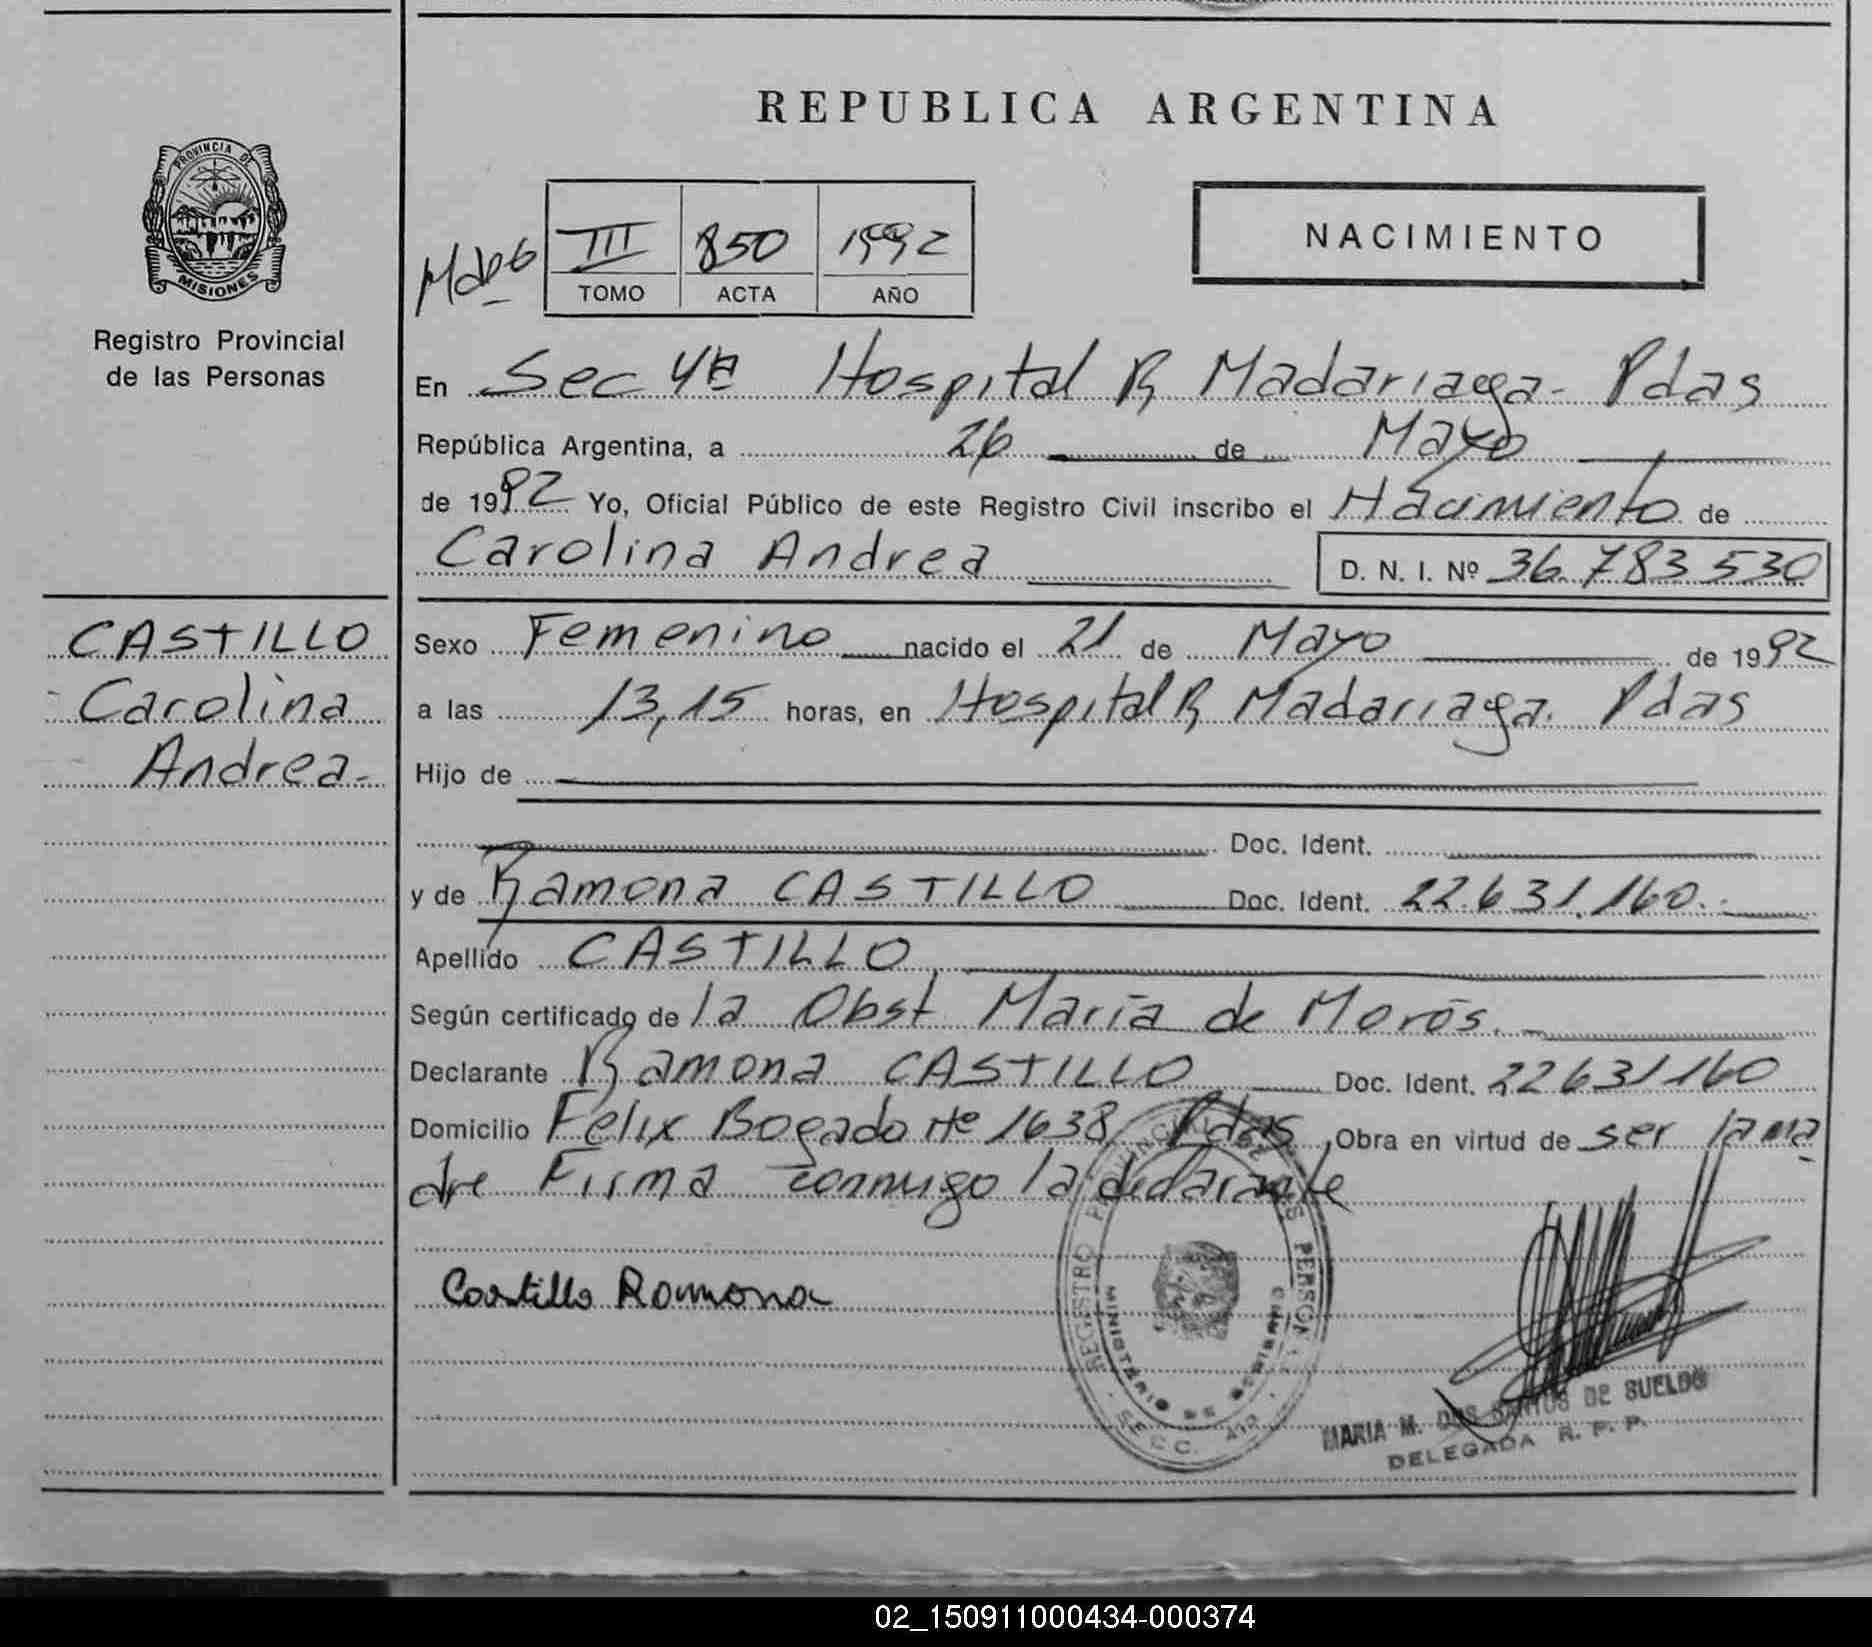 PROVINCIA DE
MISIONES
Registro Provincial
de las Personas
CASTILLO
Carolina
Andrea-
REPUBLICA ARGENTINA
III 850 1992
TOMO ACTA AÑO
NACIMIENTO
En Sec 4ta Hospital R Madariaga- Pdas
República Argentina, a 26 de Mayo
de 1992 Yo, Oficial Público de este Registro Civil inscribo el Nacimiento de
Carolina Andrea D. N. I. Nº 36.783530
Sexo Femenino nacido el 21 de Mayo de 1992
a las 13,15 horas, en Hospital R Madariaga. Pdas
Hijo de
Doc. Ident.
y de Ramona CASTILLO Doc. Ident. 22.631.160.
Apellido CASTILLO
Según certificado de la Obst María de Morós.
Declarante Ramona CASTILLO Doc. Ident. 22631160
Domicilio Felix Bogado Nº 1638 Pdas Obra en virtud de ser la ma
dre Firma conmigo la declarante
Castillo Ramona
REGISTRO PROVINCIAL DE LAS PERSONAS
MINISTERIO DE GOBIERNO
SECC. 4ta
MARIA M. DOS SANTOS DE SUELDO
DELEGADA R. P. P.
02_150911000434-000374